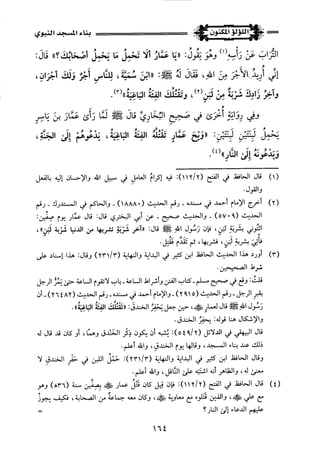 اللؤلؤ المكنون
بناء المسجد النبوي
التُّرَابَ عَنْ رَأْسِهِ(١) وَهُوَ يَقُولُ: «يَا عَمَّارُ أَلَا تَحْمِلُ مَا يَحْمِلُ أَصْحَابُكَ؟» قَالَ:
إِنِّي أُرِيدُ الْأَجْرَ مِنَ اللهِ، فَقَالَ لَهُ ﷺ: «ابْنَ سُمَيَّةَ، لِلنَّاسِ أَجْرٌ وَلَكَ أَجْرَانِ،
وَآخِرُ زَادِكَ شَرْبَةٌ مِنْ لَبَنٍ(٢)، وَتَقْتُلُكَ الْفِئَةُ الْبَاغِيَةُ»(٣).
وفِي رِوَايَةٍ أُخْرَى في صَحِيحِ الْبُخَارِيِّ قَالَ ﷺ لَمَّا رَأَى عَمَّارَ بنَ يَاسِرٍ
يَحْمِلُ لَبِنَتَيْنِ لَبِنَتَيْنِ: «وَيْحَ عَمَّارٍ تَقْتُلُهُ الْفِئَةُ الْبَاغِيَةُ، يَدْعُوهُمْ إِلَى الْجَنَّةِ،
وَيَدْعُونَهُ إِلَى النَّارِ»(٤).
(١) قال الحافظ في الفتح (١١٢/٢): فيه إكرامُ العامل في سبيل الله والإحسان إليه بالفعل
والقول.
(٢) أخرج الإمام أحمد في مسنده ـ رقم الحديث (١٨٨٨٠) ـ والحاكم في المستدرك ـ رقم
الحديث (٥٧٠٩) ـ والحديث صحيح ـ عن أبي البختري قال: قال عمار يوم صفين:
ائتُوني بشربةِ لبن، فإن رسول الله ﷺ قال: «آخر شَرْبَةٍ تشربها من الدنيا شَرْبَةُ لبن»،
فأُتِيَ بشربةِ لبن، فشربها، ثم تقدم فقُتِل.
(٣) أورد هذا الحديث الحافظ ابن كثير في البداية والنهاية (٢٣١/٣) وقال: هذا إسناد على
شرط الصحيحين.
قلتُ: وقع في صحيح مسلم ـ كتاب الفتن وأشراط الساعة ـ باب لا تقوم الساعة حتى يَمُرَّ الرجل
بقبر الرجل ـ رقم الحديث (٢٩١٥) ـ والإمام أحمد في مسنده ـ رقم الحديث (٢٦٤٨٢) ـ أن
رسول الله ﷺ قال لعمار ﷺ، حين جعل يَحْفِرُ الخندق: «تَقْتُلُكَ الفِئَةُ البَاغِيَةُ».
والإشكال هنا قوله: يحفِرُ الخندق.
قال البيهقي في الدلائل (٥٤٩/٢): يُشبه أن يكون ذِكْرُ الخَنْدقِ وهمًا، أو كان قد قال له
ذلك عند بناء المسجد، وقالها يوم الخندق، والله أعلم.
وقال الحافظ ابن كثير في البداية والنهاية (٢٣١/٣): حَمْلُ اللبن في حَفْرِ الخندق لا
معنى له، والظاهر أنه اشتَبَه على النَّاقل، والله أعلم.
(٤) قال الحافظ في الفتح (١١٢/٢): فإن قيل كان قَتْلُ عمار ﷺ بِصِفِّين سنة (٨٣٦) وهو
مع علي ﷺ، والذين قتلوه مع معاوية ﷺ، وكان معه جماعةٌ من الصحابة، فكيف يجوزُ
عليهم الدعاء إلى النار؟
=
١٦٤